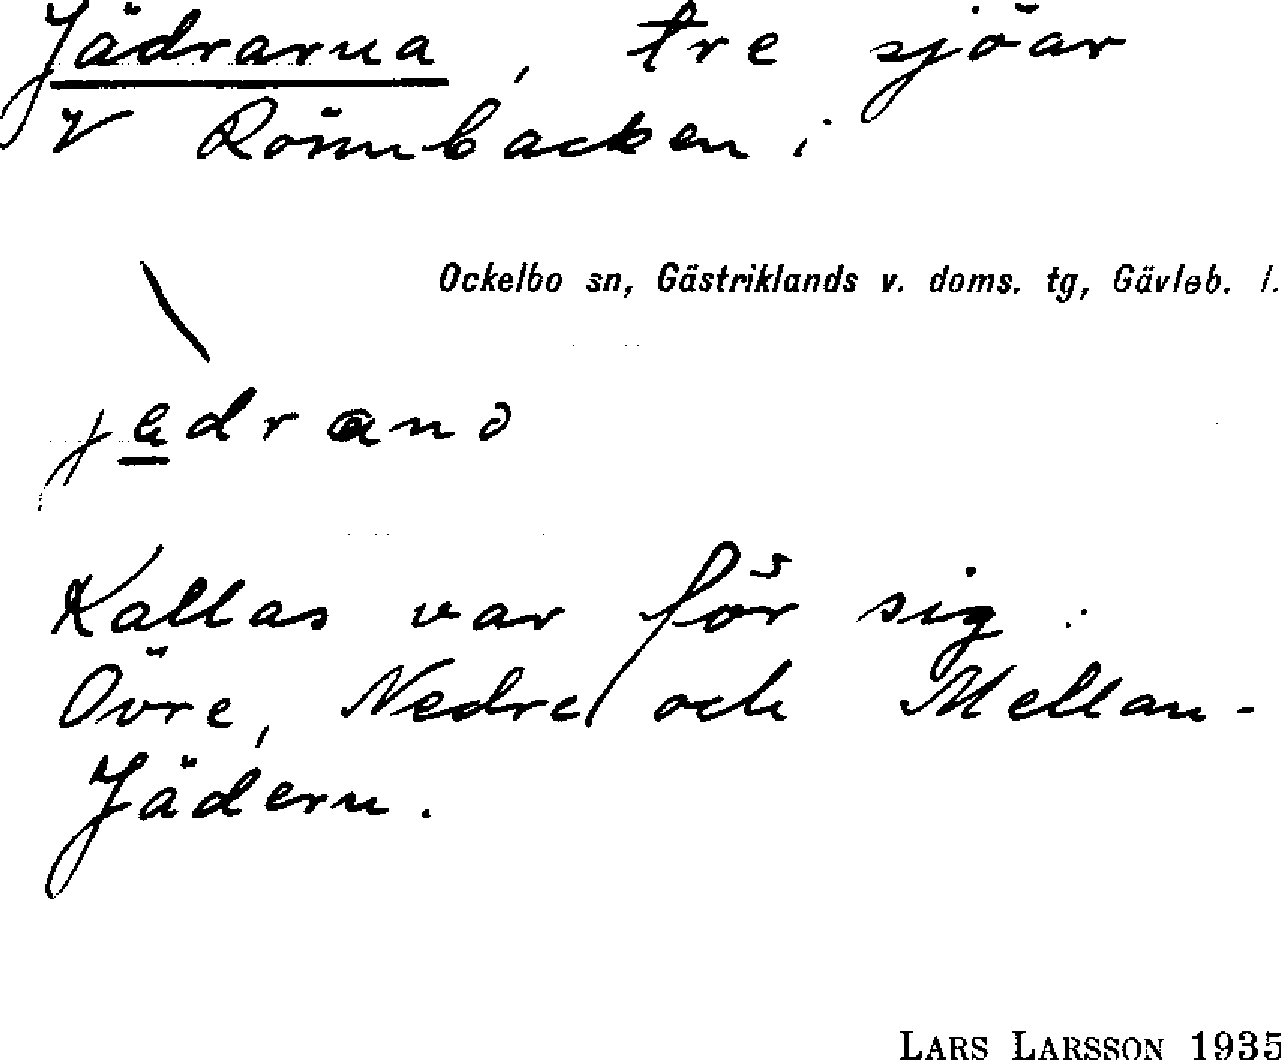 Jädrarna, tre sjöar
V Rönnbacken i
Ockelbo sn, Gästriklands v. doms. tg, Gävleb. l.
Kallas var för sig:
Övre, Nedre och Mellan-
Jädern.
LARS LARSSON 1935